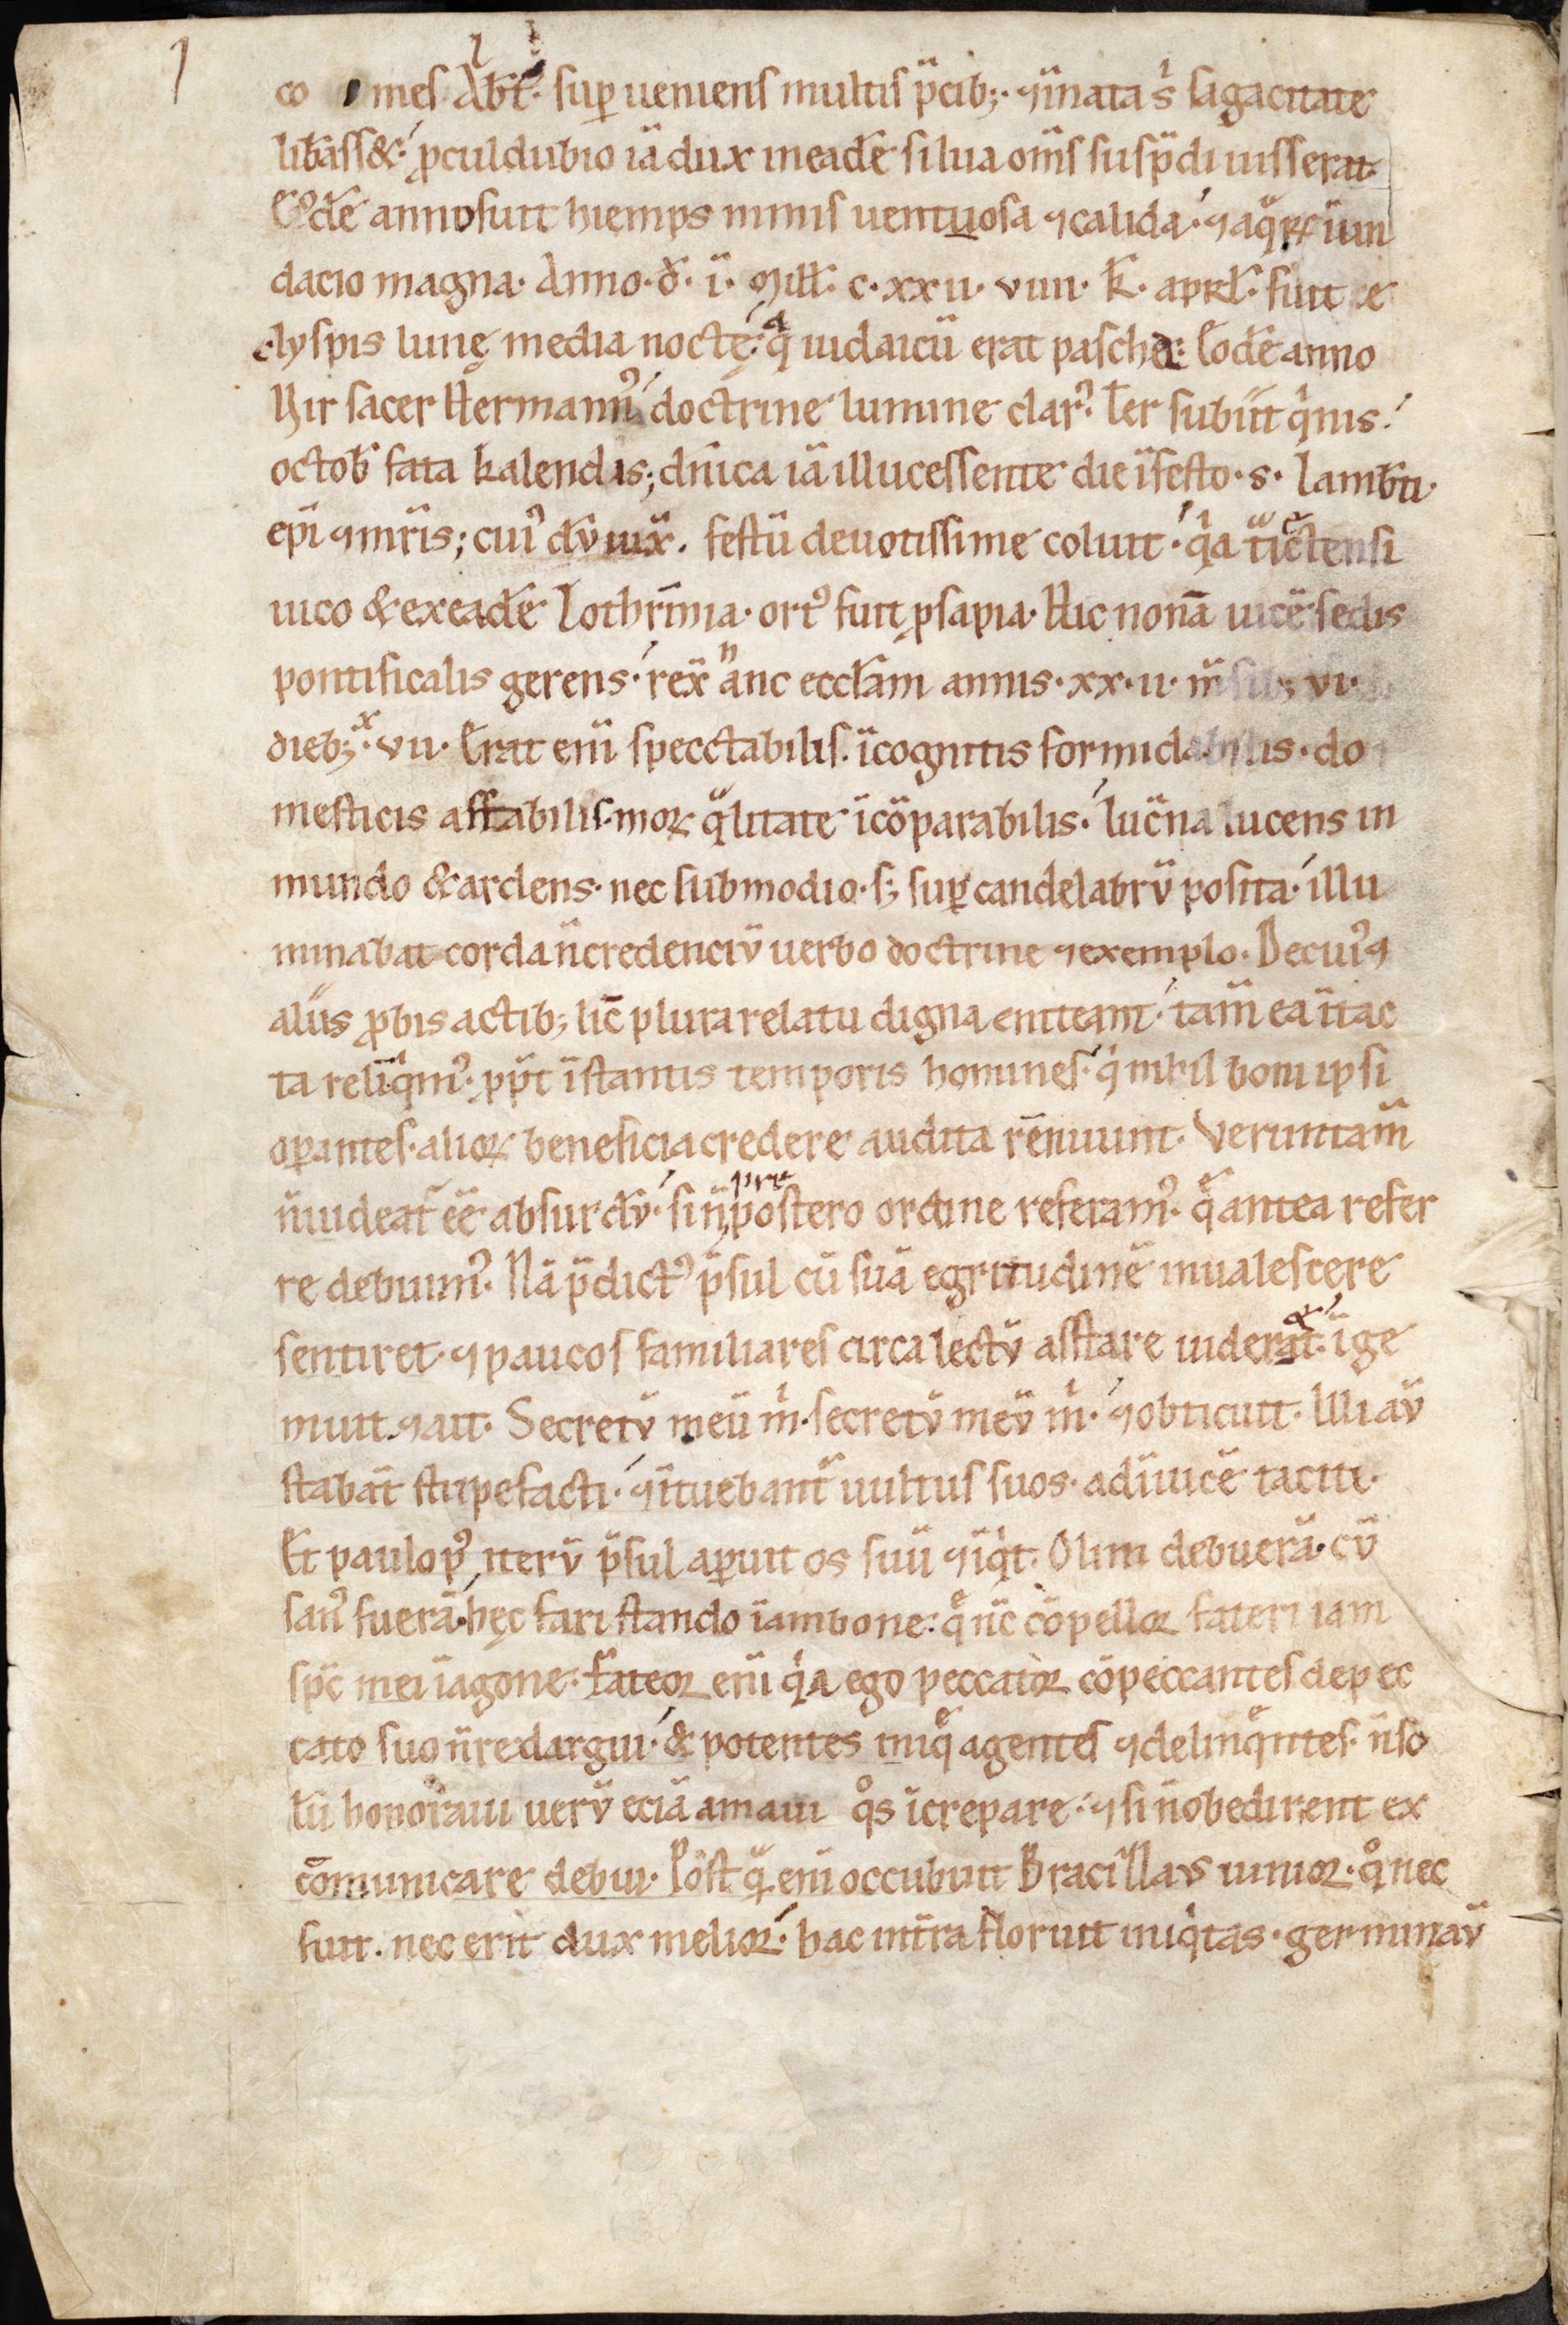 co mes Abt̄· suꝑ ueniens multis p̈cib;· ⁊ïnata sͥ sagacitate
lib̄ass&· ꝓculdubio iā dux ineadē silua om̄s susp̈di iusserat·
Eodē anno fuit hiemps nimis uentuosa ⁊calida· ⁊aq̈ꝝ ïun
dacio magna· Anno· d̄· i· Mill̄· c· xx ii· viiii· k̄· apr̄l· fuit e
clyspis lunę media noctę· qᵃ iudaicū erat pascha: Eodē anno
Vir sacer Hermannꝰ doctrine lumine clarꝰ· Ter subiit qͥnis·
octob̄ fata kalendas; dn̄ica iā illucessente die ïfesto· s· lamb̄ti·
ep̄i ⁊mr̄is; cuiꝰ dv̄ uix̄· festū deuotissime coluit· qͥa tͣiectensi
uico &exeadē Lothr̄inia· ortꝰ fuit ꝓsapia· Hic nonā uicē sedis
pontificalis gerens· rex̄ hanc eccl̄am annis· xx· ii· m̄sib; vi·
dieb;ˣ· vii· Erat enī specctabilis· ïcognitis formidabilis· do
mesticis affabilis· moꝝ qͣlitate ïcōparabilis· luc̄na lucens in
mundo &ardens· nec submodio· s; suꝑ candelabrv̄ posita· illu
minabat corda ïcredenciv̄ uerbo doctrine ⁊exemplo· De cuiꝰ ⁊
aliis ꝓbis actib; lic̄ plura relatu digna eniteant· tam̄ ea ïtac
ta reliqͥmꝰ· ꝓpt̄ ïstantis temporis homines· qͥ nihil boni ipsi
oꝑantes· alioꝝ beneficia credere audita rēnuunt· Veruntam̄
n̄uideat̄ eē absurdv̄· si n̄c prepostero ordine referamꝰ· qͤ antea refer
re debuimꝰ· Nā p̄dictꝰ p̄sul cū suā egritudinē inualescere
sentiret· ⁊paucos familiares circa lectv̄ asstare uiderat̄· ïge
muit ⁊ait· Secretv̄ meū mͥ· secretv̄ mev̄ mͥ· ⁊obticuit· Illi av̄
stabāt stupefacti· ⁊ïtuebant̄ uultus suos· adïuicē taciti·
Et paulo pꝰ iterv̄ p̄sul aꝑuit os suū ⁊ïqͥt· Olim debuerā· cv̄
sanꝰ fuerā· hęc fari stando ïambone: qͤ n̄c cōpelloꝛ fateri iam
sp̄c mei ïagone· Fateoꝛ enī qͥa ego peccatoꝛ cōpeccantes de pec
cato suo n̄redargui· & potentes iniqͤ agentes ⁊delinqͤntes· n̄so
lū honoraui uerv̄ eciā amaui qͦs ïcrepare· ⁊si n̄obedirent ex
cōmunicare debui· Postqͣ enī occubuit Bracizlavs iunioꝛ· qͦ nec
fuit· nec erit dux melioꝛ· hac int̄ra floruit iniqͥtas· germinav̄